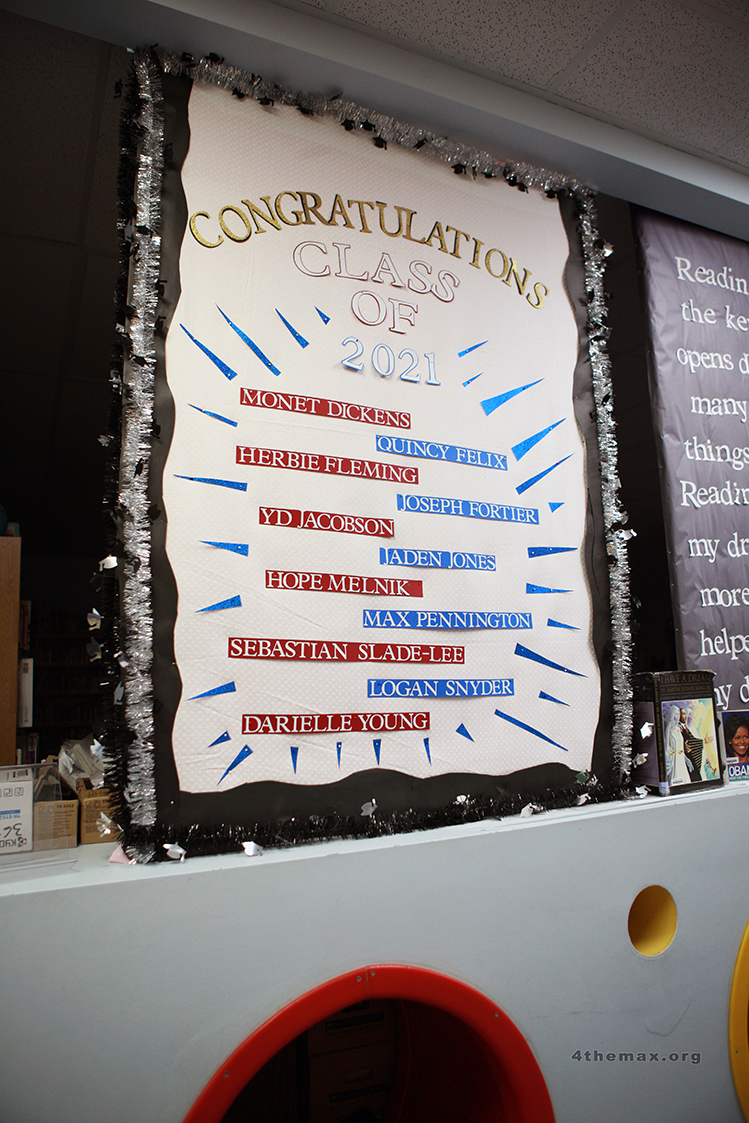 CONGRATULATIONS
CLASS
OF
2021
MONET DICKENS
QUINCY FELIX
HERBIE FLEMING
JOSEPH FORTIER
YD JACOBSON
JADEN JONES
HOPE MELNIK
MAX PENNINGTON
SEBASTIAN SLADE-LEE
LOGAN SNYDER
DARIELLE YOUNG
Readin
the key
opens d
many
things
Readin
my dr
more
helpe
my d
I HAVE A DREAM
OBAM
4themax.org